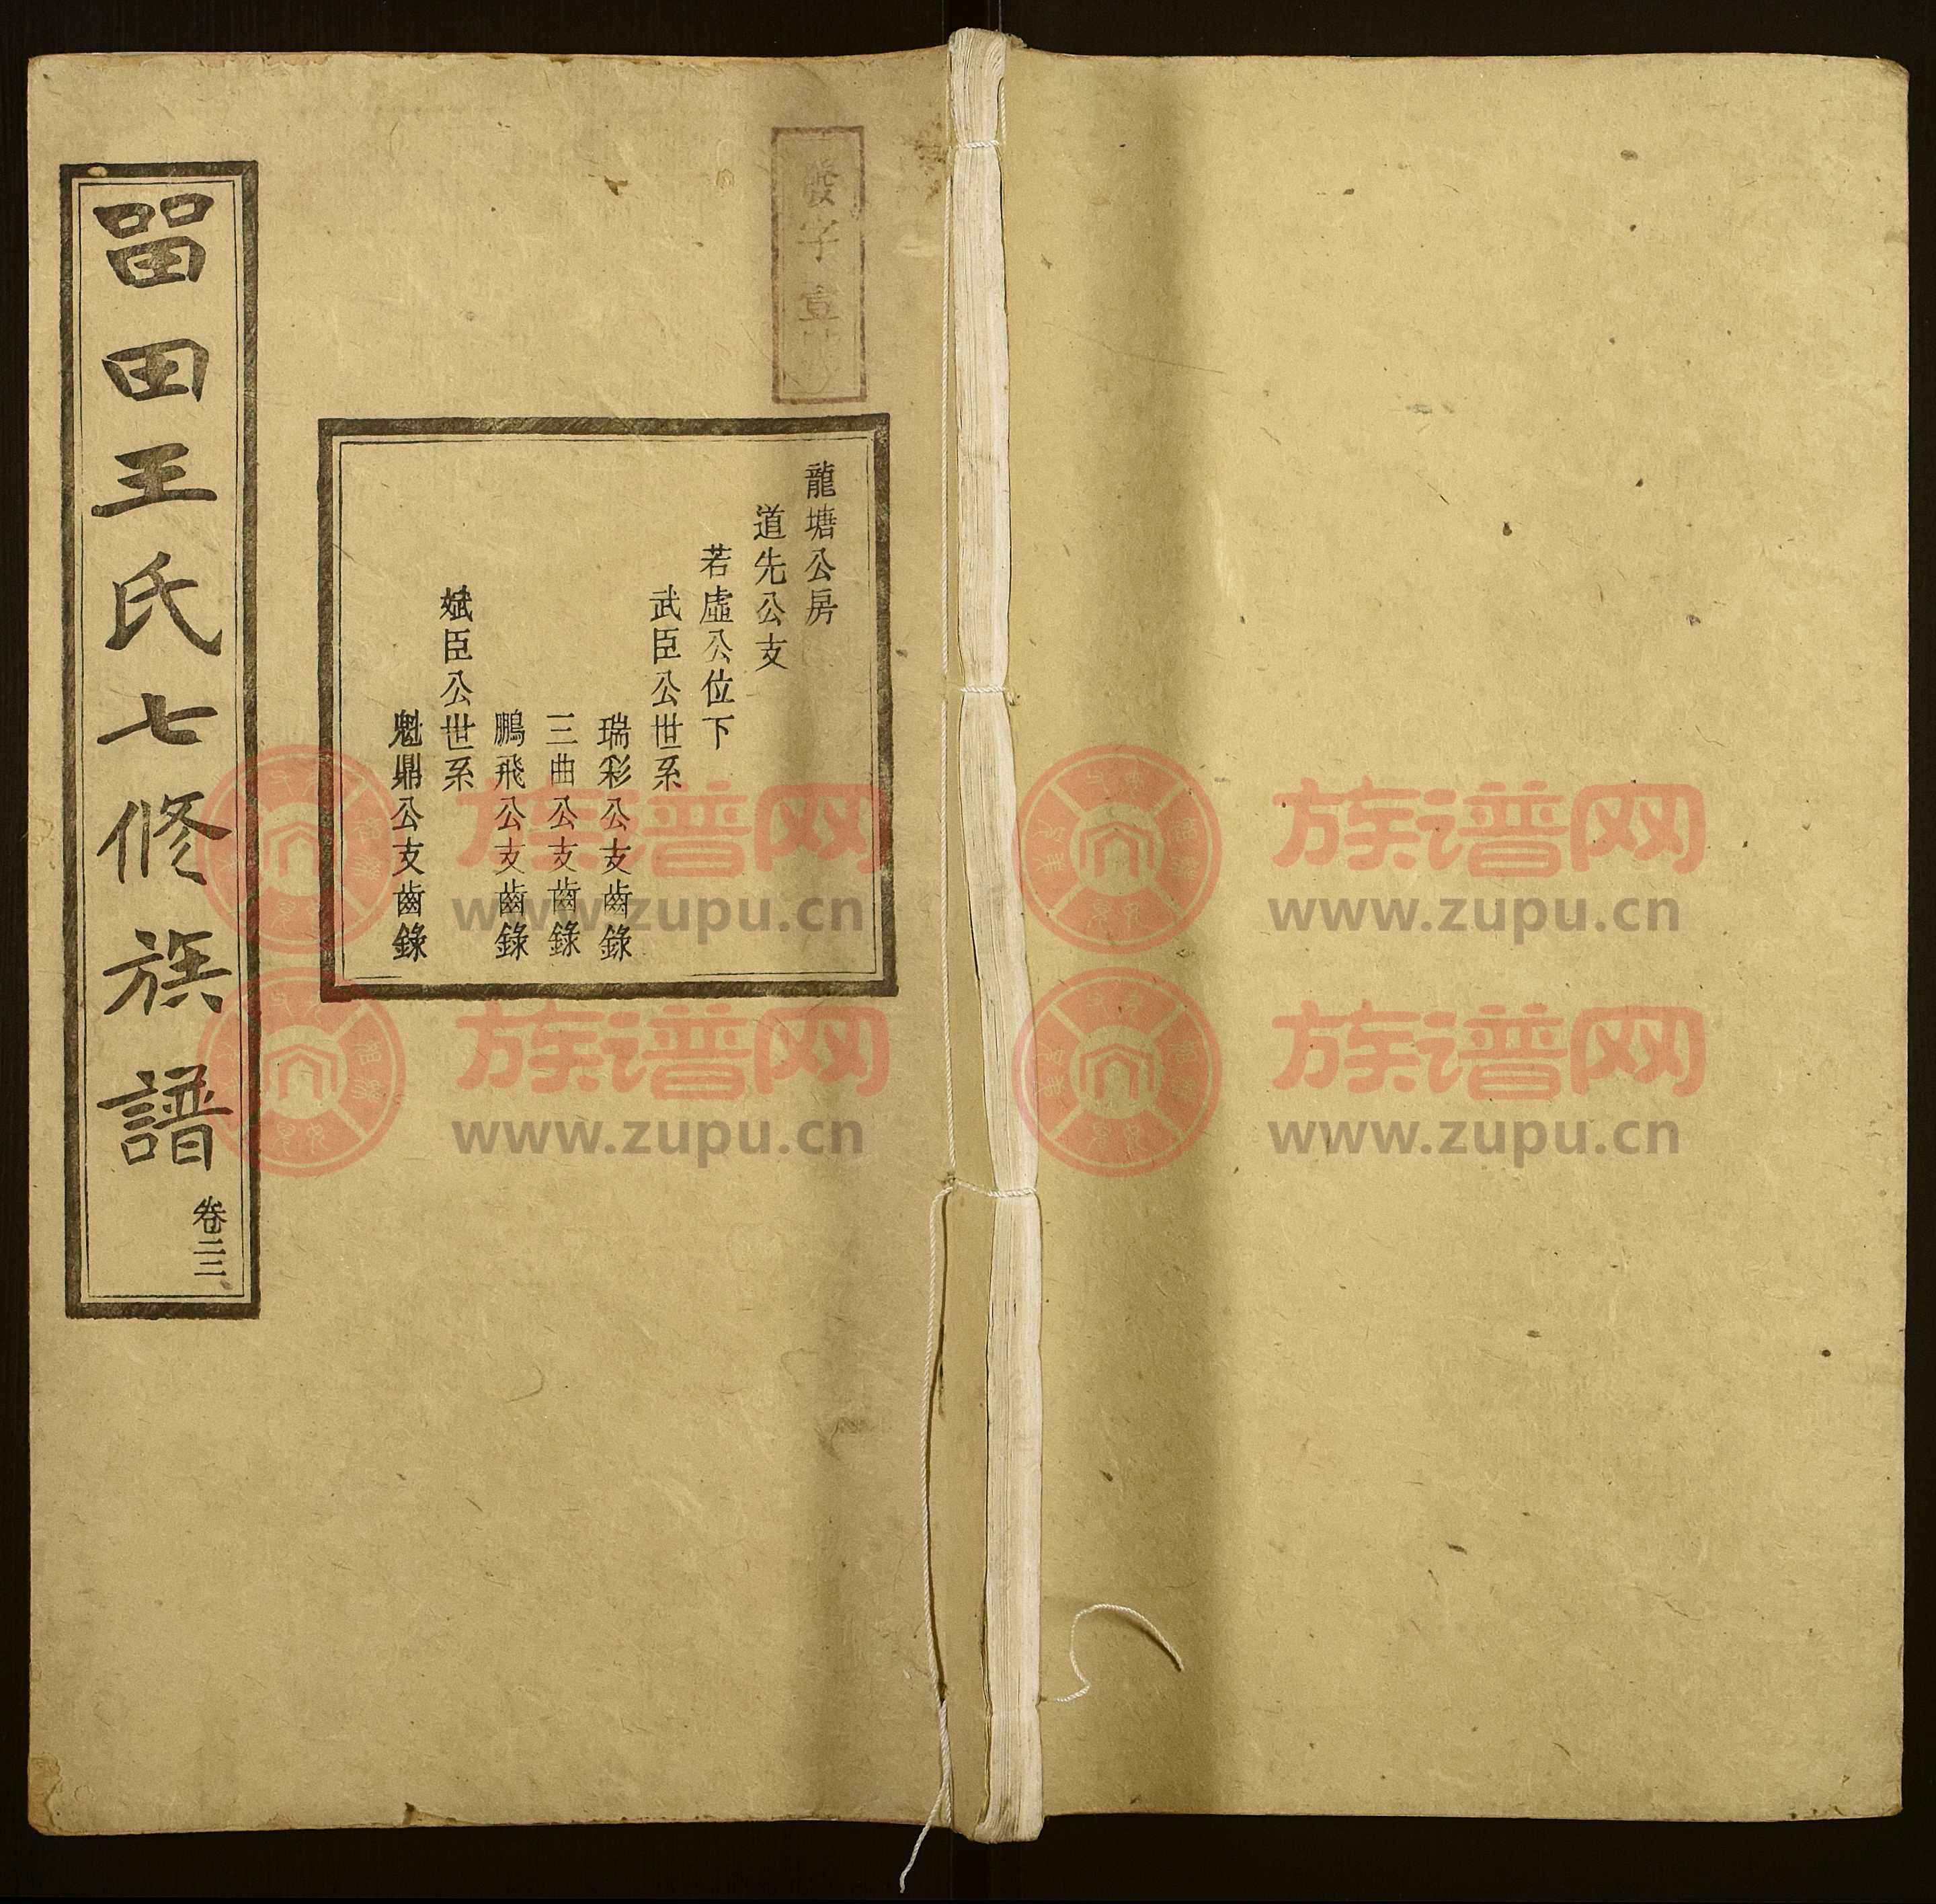 畱田王氏七修族譜
卷二三
發字壹
龍塘公房
道先公支
若虛公位下
武臣公世系
瑞彩公支齒錄
三曲公支齒錄
鵬飛公支齒錄
斌臣公世系
魁鼎公支齒錄
族谱网
www.zupu.cn
族谱网
www.zupu.cn
族谱网
www.zupu.cn
族谱网
www.zupu.cn